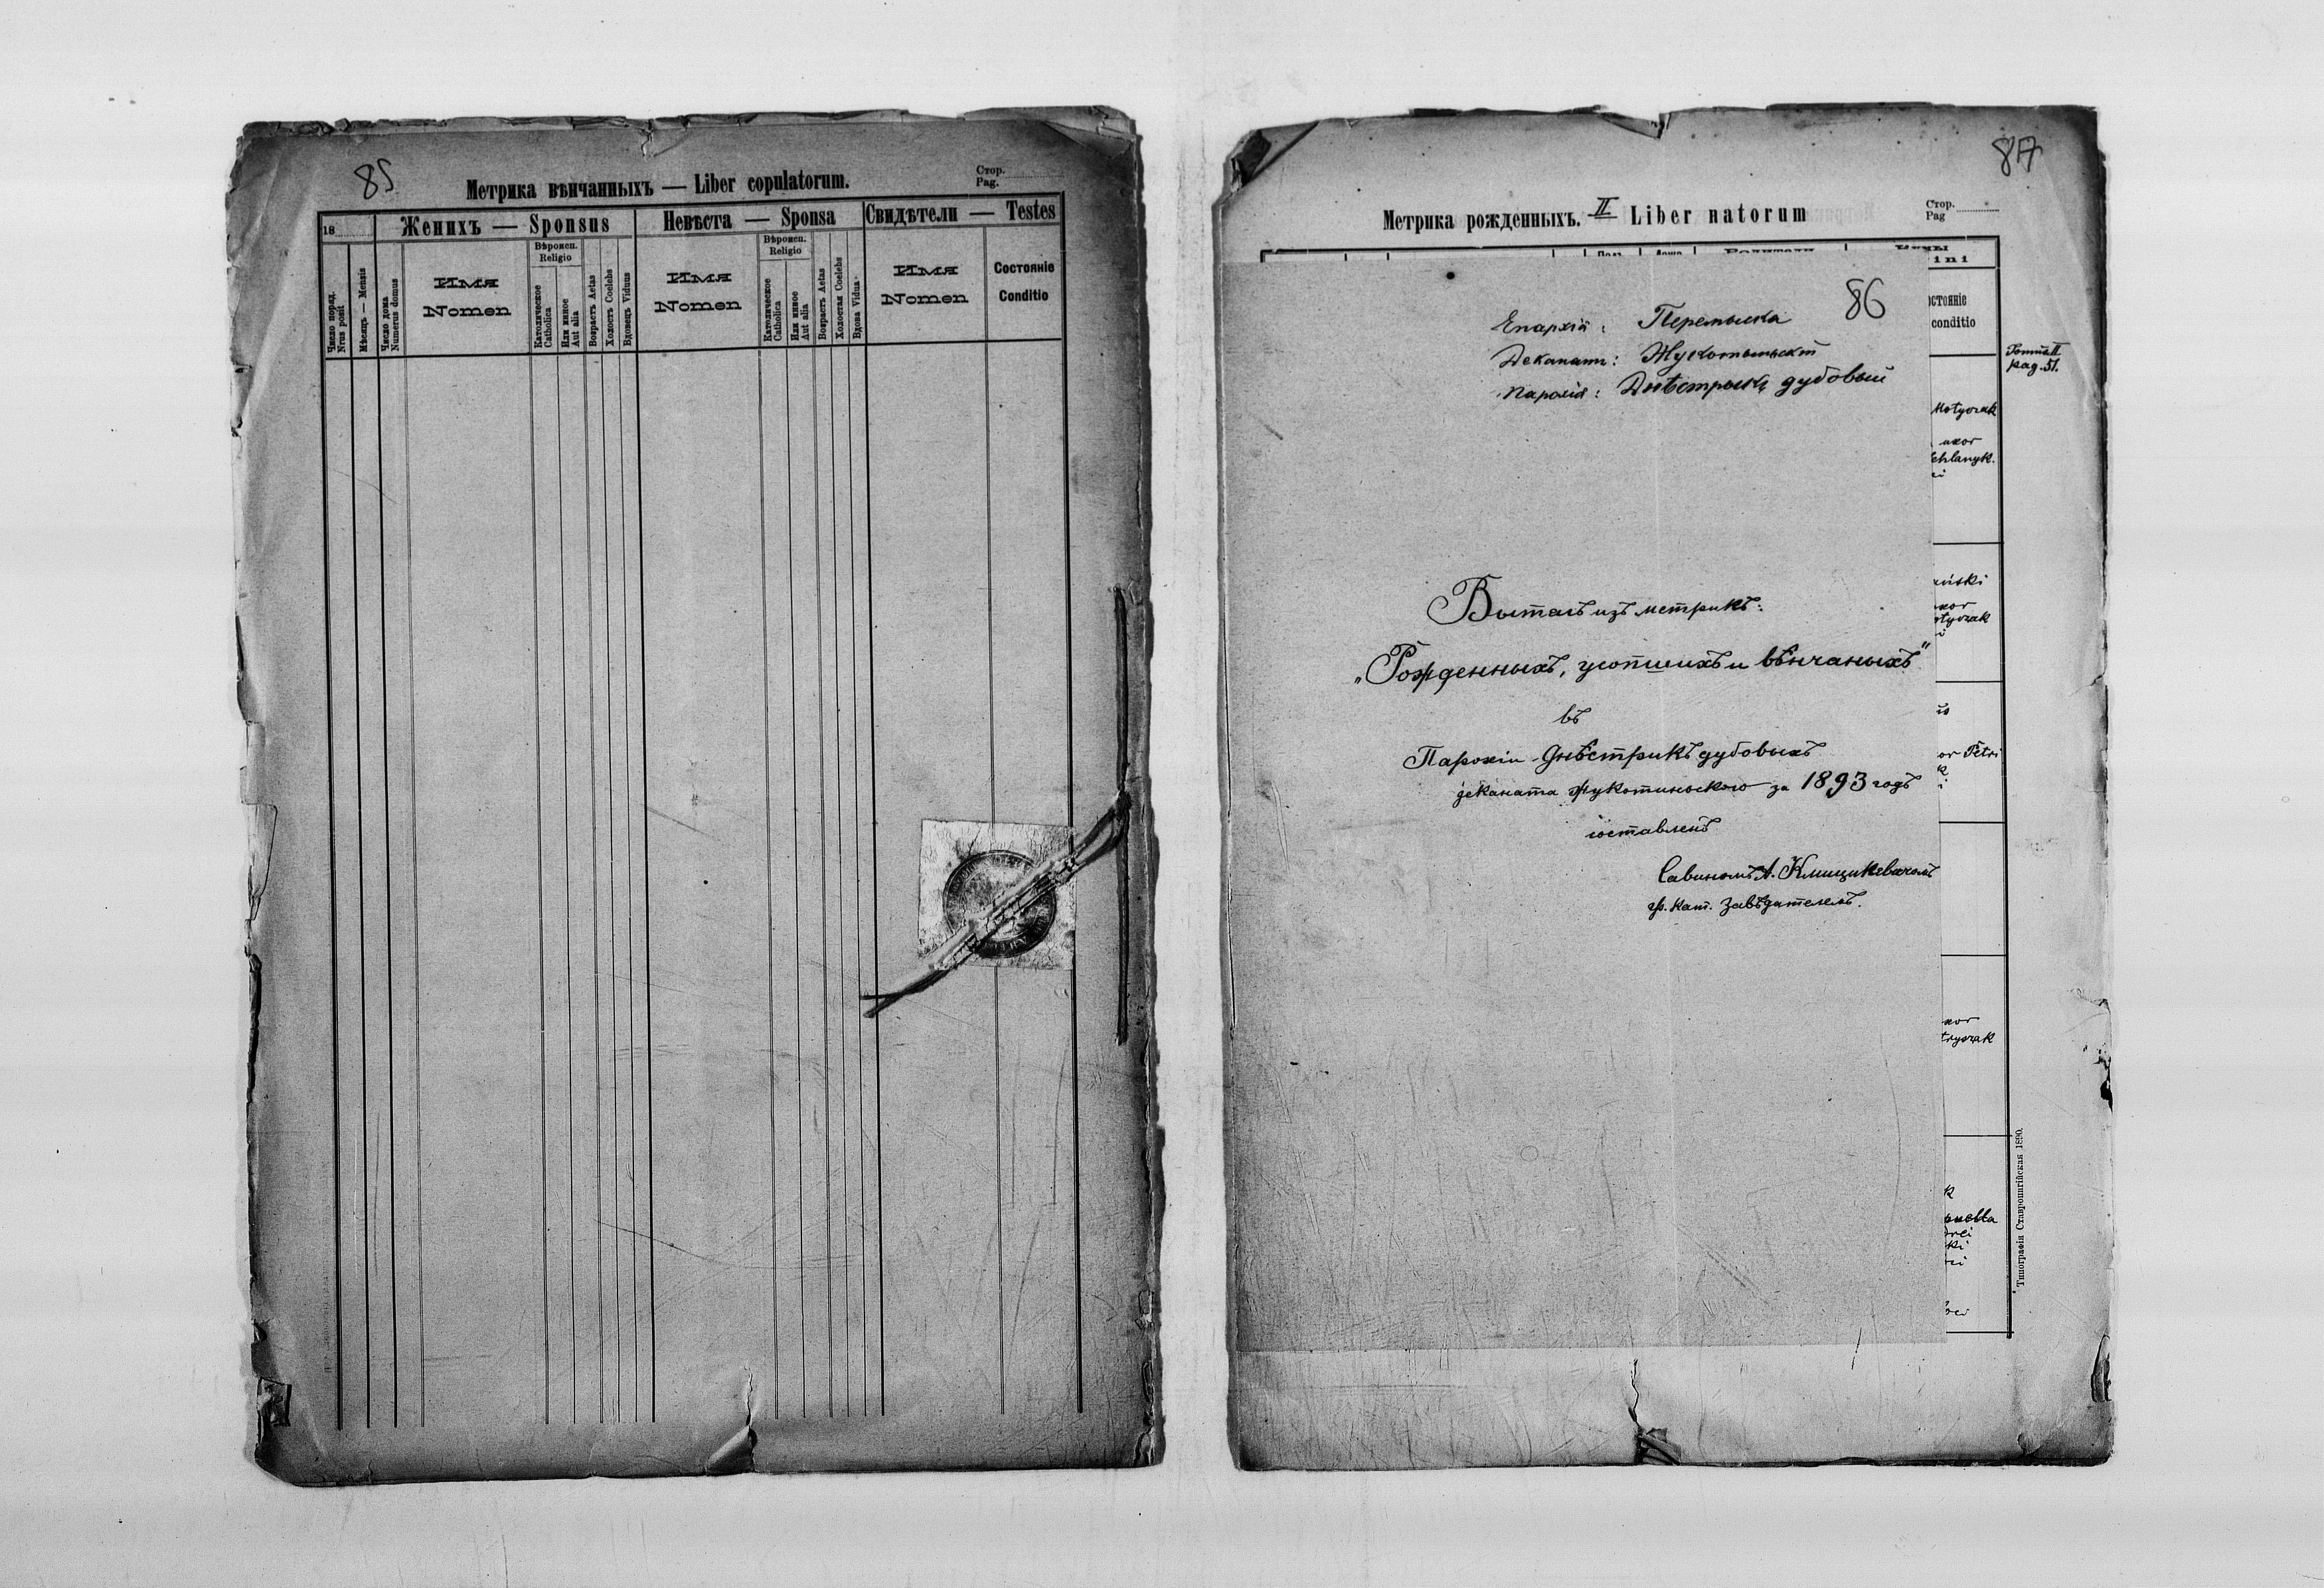 85
Метрика вѣнчанныхъ — Liber copulatorum.
Стор.
Pag.
18
Женихъ — Sponsus
Невѣста — Sponsa
Свидѣтели — Testes
Число поряд.
Nrus posit
Мѣсяцъ — Mensis
Число дома
Numerus domus
Имя
Nomen
Вѣроисп.
Religio
Католическое
Catholica
Или иное
Aut alia
Возрастъ Aetas
Холостъ Coelebs
Вдовецъ Viduus
Имя
Nomen
Вѣроисп.
Religio
Католическое
Catholica
Или иное
Aut alia
Возрастъ Aetas
Холостая Coelebs
Вдова Vidua
Имя
Nomen
Состояніе
Conditio
87
Метрика рожденныхъ. II Liber natorum
Стор.
Pag
86
Епархія: Перемыска
Деканатъ:
Парохія: Днѣстрыкъ дубовый
Вытягъ изъ метрикъ:
„Рожденныхъ, усопшихъ и вѣнчаныхъ"
въ
Парохіи Днѣстрикъ дубовыхъ
деканата Жукотиньского за 1893 годъ
составленъ
Савиномъ А. Кмицикевичомъ
гр. кат. завѣдателемъ.
ini
стояніе
conditio
Tomus II
pag. 51.
Motyczak
uxor
chlanyk.
ński
xor
otyczak
or Petri
xor
tryczak
ki
Типографія Ставропигійская 1890.